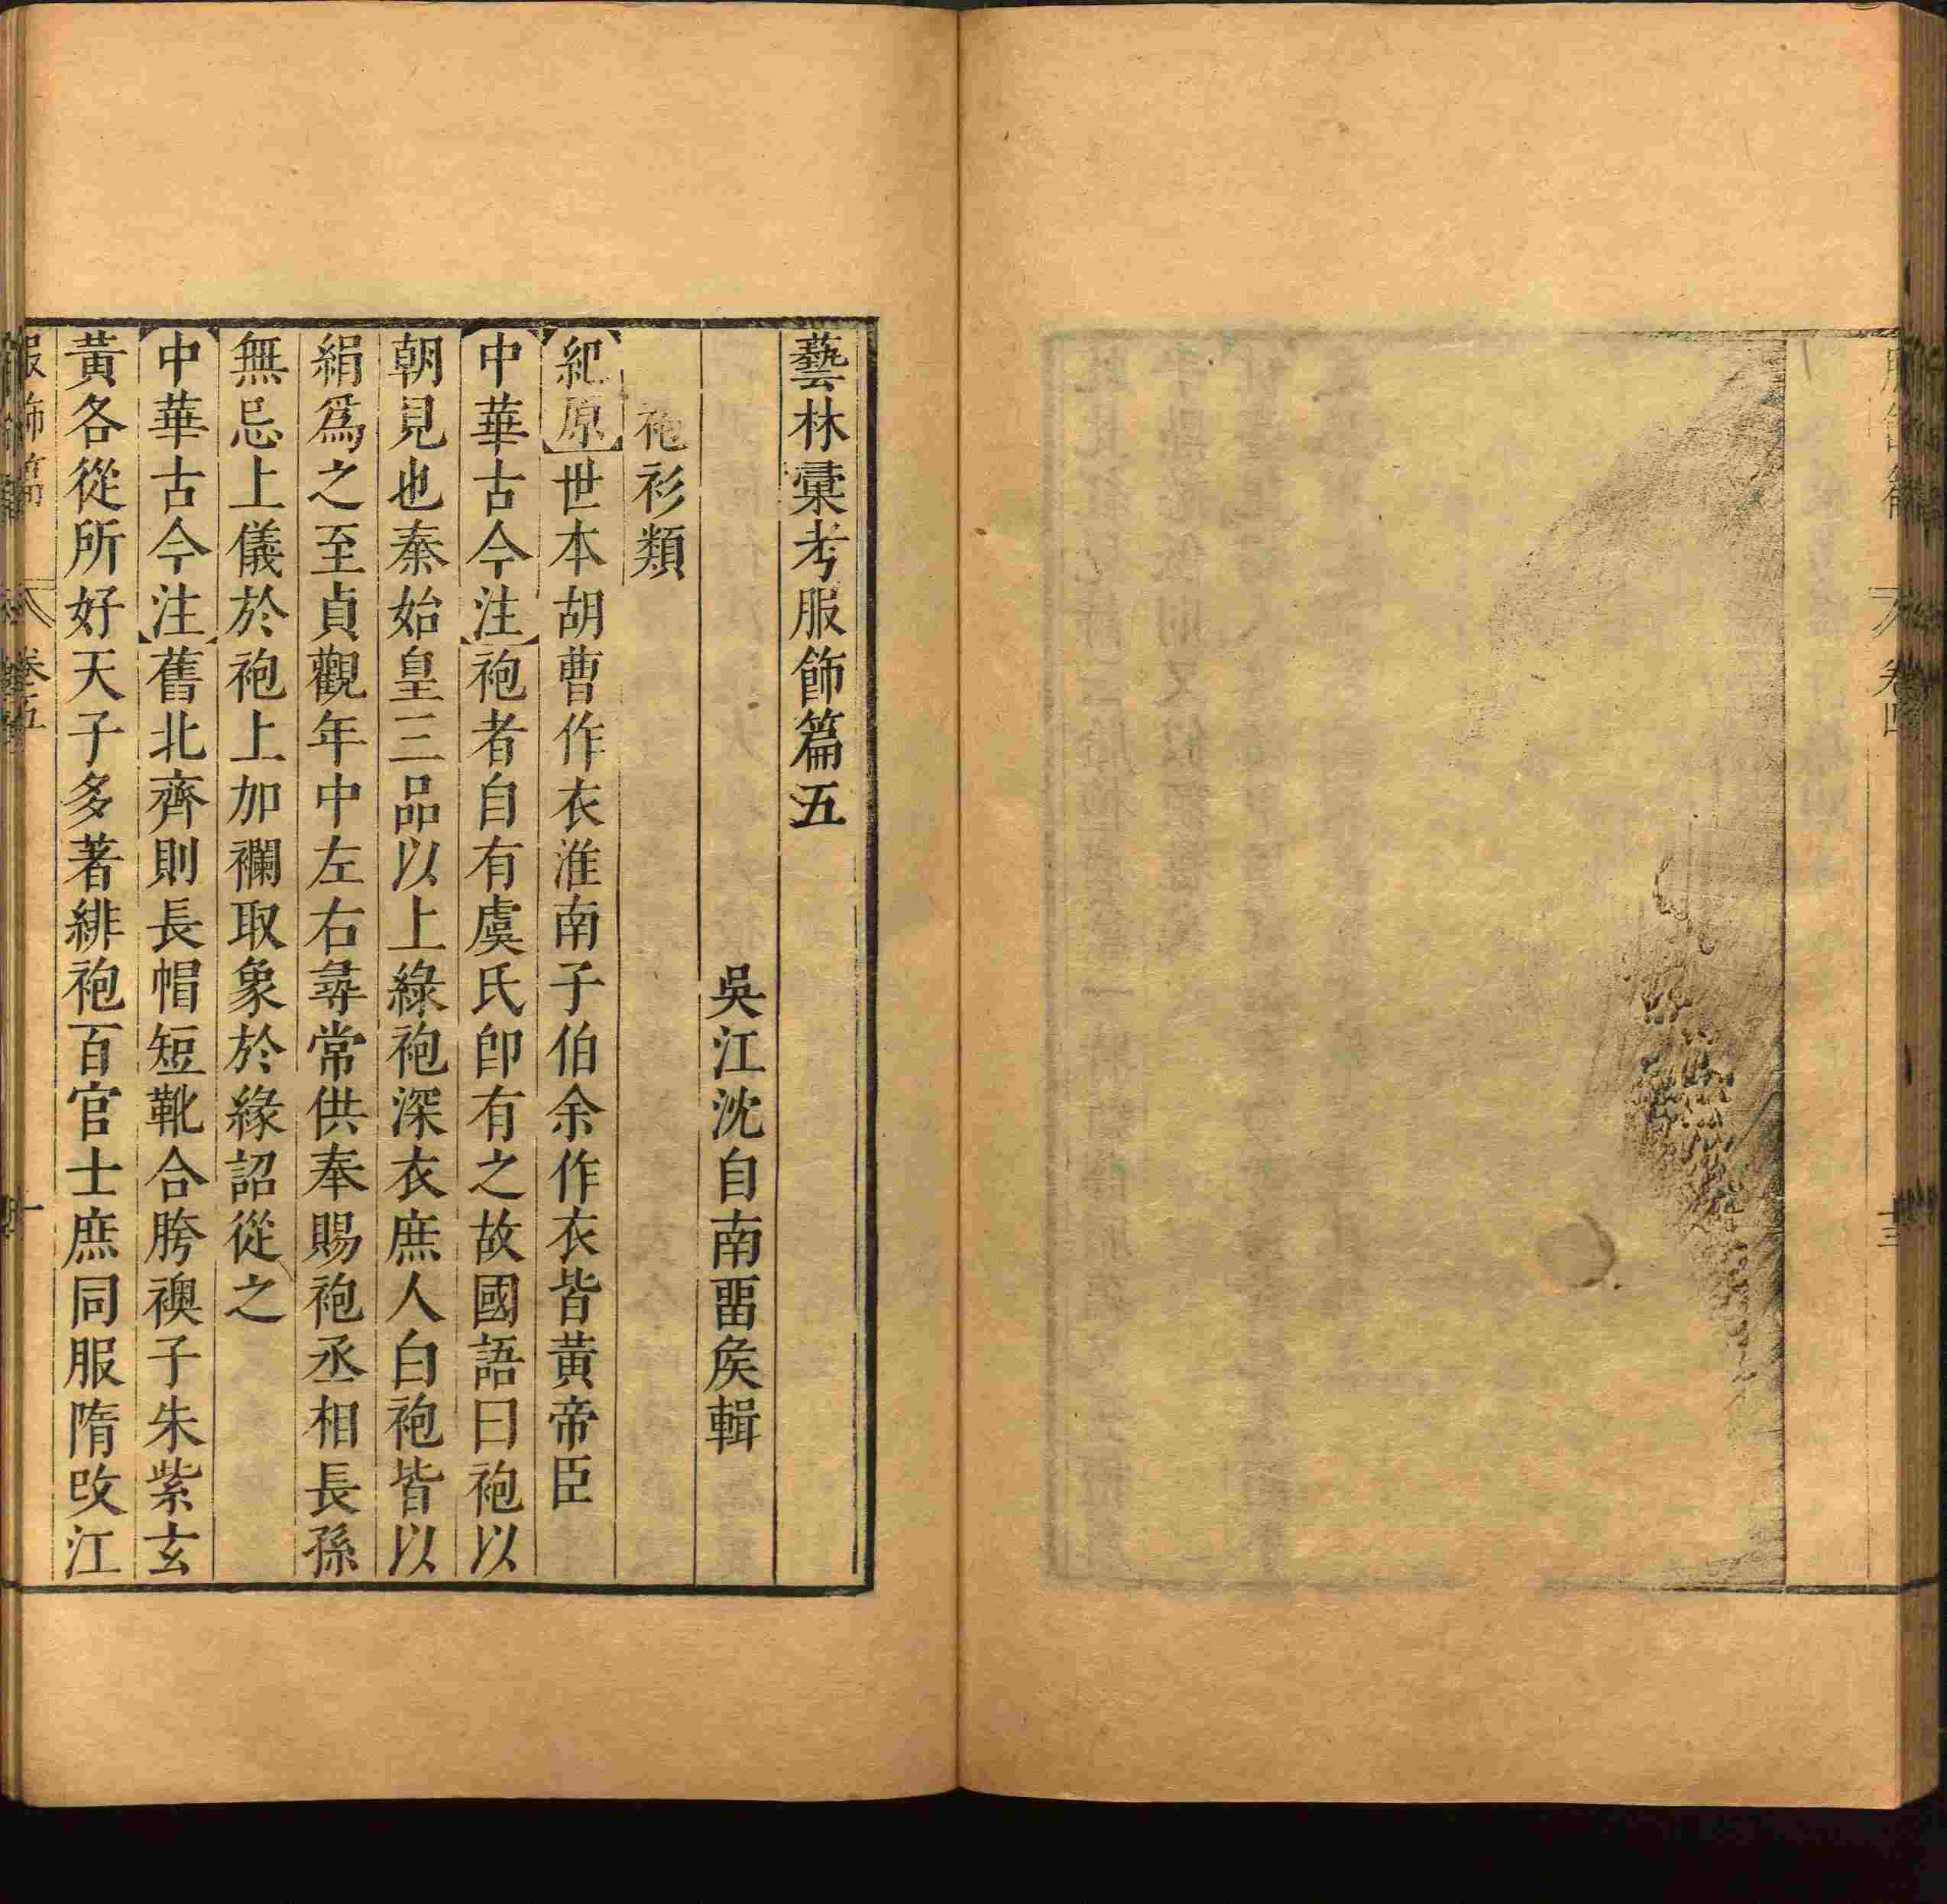 卷四
十三
藝林彙考服飾篇五
吳江沈自南畱矦輯
袍衫類
紀原世本胡曹作衣淮南子伯余作衣皆黃帝臣
中華古今注袍者自有虞氏卽有之故國語曰袍以
朝見也秦始皇三品以上綠袍深衣庶人白袍皆以
絹爲之至貞觀年中左右尋常供奉賜袍丞相長孫
無忌上儀於袍上加襴取象於緣詔從之
中華古今注舊北齊則長帽短靴合胯襖子朱紫玄
黃各從所好天子多著緋袍百官士庶同服隋改江
服飾篇 卷五 一